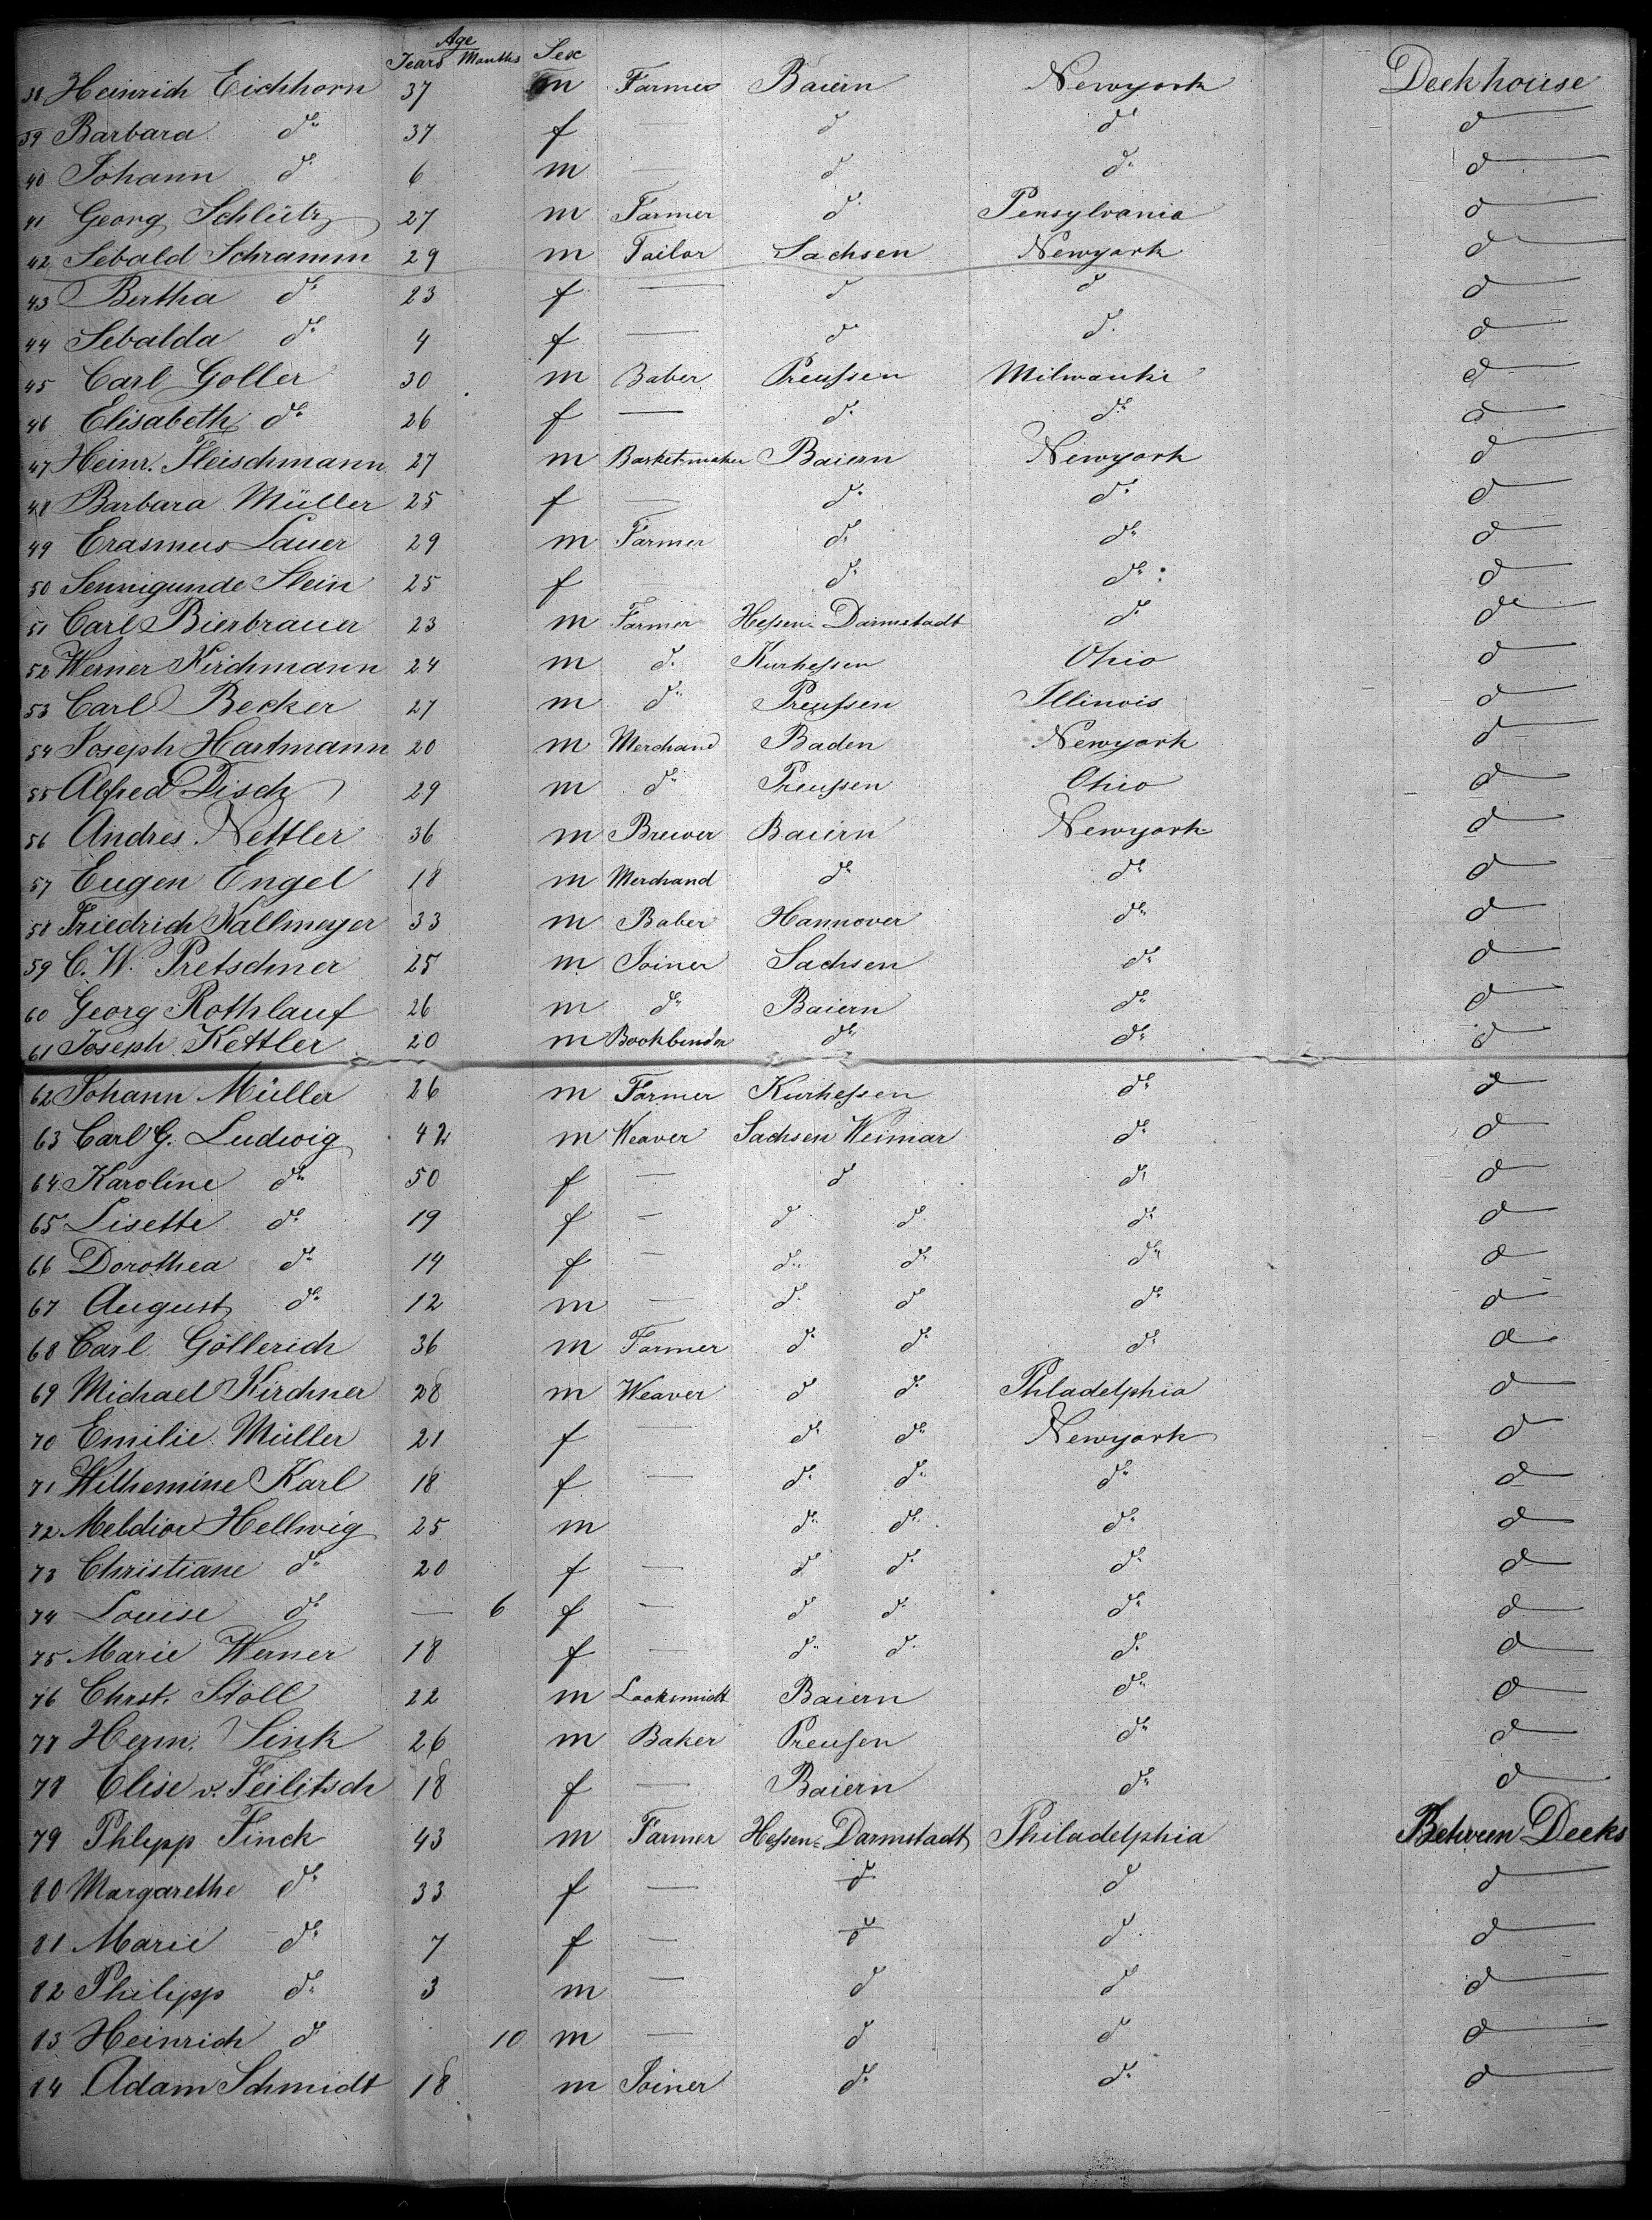 Age
Years Months Sex
38 Heinrich Eichhorn 37 m Farmer Baiern Newyork Deckhouse
39 Barbara do 37 f — do do do
40 Johann do 6 m — do do do
41 Georg Schlütz 27 m Farmer do Pensylvania do
42 Sebald Schramm 29 m Tailor Sachsen Newyork do
43 Bertha do 23 f — do do do
44 Sebalda do 4 f — do do do
45 Carl Goller 30 m Baber Preussen Milwauki do
46 Elisabeth do 26 f — do do do
47 Heinr. Fleischmann 27 m Basketmaker Baiern Newyork do
48 Barbara Müller 25 f — do do do
49 Erasmus Lauer 29 m Farmer do do do
50 Sennigunde Stein 25 f — do do do
51 Carl Bierbrauer 23 m Farmer Hessen-Darmstadt do do
52 Werner Kirchmann 24 m do Kurhessen Ohio do
53 Carl Becker 27 m do Preussen Illinois do
54 Joseph Hartmann 20 m Merchand Baden Newyork do
55 Alfred Disch 29 m do Preussen Ohio do
56 Andres Nettler 36 m Brewer Baiern Newyork do
57 Eugen Engel 18 m Merchand do do do
58 Friedrich Kallmeyer 33 m Baber Hannover do do
59 C. W. Pretschner 25 m Joiner Sachsen do do
60 Georg Rothlauf 26 m do Baiern do do
61 Joseph Kettler 20 m Bookbinder do do do
62 Johann Müller 26 m Farmer Kurhessen do do
63 Carl G. Ludwig 42 m Weaver Sachsen Weimar do do
64 Karoline do 50 f — do do do
65 Lisette do 19 f — do do do do
66 Dorothea do 14 f — do do do do
67 August do 12 m — do do do do
68 Carl Göllerich 36 m Farmer do do do do
69 Michael Kirchner 28 m Weaver do do Phladelphia do
70 Emilie Müller 21 f — do do Newyork do
71 Wilhemine Karl 18 f — do do do do
72 Melchior Hellwig 25 m do do do do
73 Christiane do 20 f — do do do do
74 Louise do — 6 f — do do do do
75 Marie Werner 18 f — do do do do
76 Chrst. Stoll 22 m Looksmidt Baiern do do
77 Herm. Sink 26 m Baker Preusen do do
78 Elise v. Feilitsch 18 f — Baiern do do
79 Phlipp Finck 43 m Farmer Hessen-Darmstadt Philadelphia Between Decks
80 Margarethe do 33 f — do do do
81 Marie do 7 f — do do do
82 Philipp do 3 m — do do do
83 Heinrich do 10 m — do do do
84 Adam Schmidt 18 m Joiner do do do